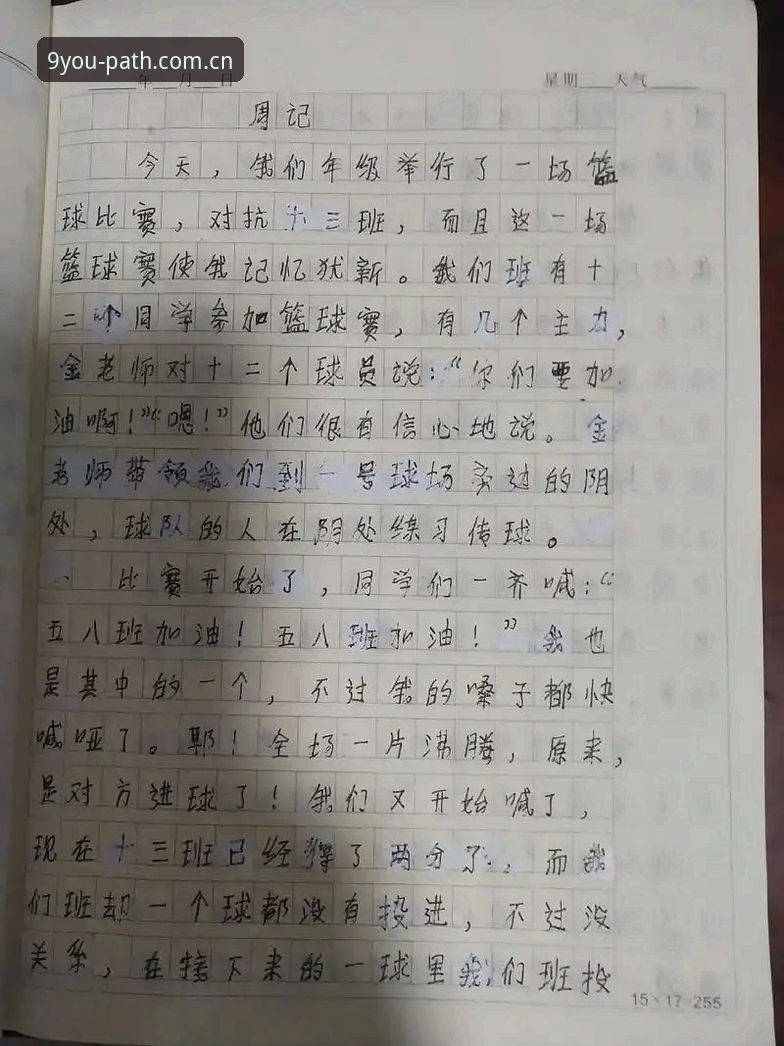 9you-path.com.cn
年 月 日 星期 天气
周记
今天，我们年级举行了一场篮
球比赛，对抗十三班，而且这一场
篮球赛使我记忆犹新。我们班有十
二个同学参加篮球赛，有几个主力，
金老师对十二个球员说：“你们要加
油啊！”“嗯！”他们很有信心地说。金
老师带领我们到一号球场旁边的阴
处，球队的人在阴处练习传球。
比赛开始了，同学们一齐喊：“
五八班加油！五八班加油！”我也
是其中的一个，不过我的嗓子都快
喊哑了。耶！全场一片沸腾，原来，
是对方进球了！我们又开始喊了，
现在十三班已经得了两分了，而我
们班却一个球都没有投进，不过没
关系，在接下来的一球里我们班投
15×17=255